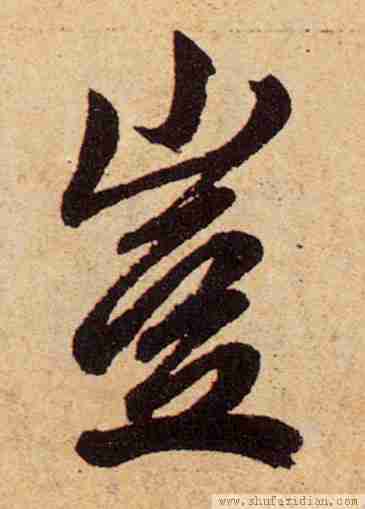 豈
www.shufazidian.com